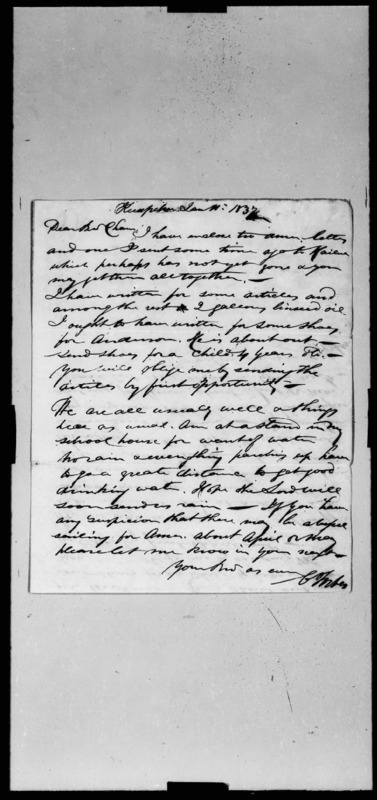 Jan 11. 1837
Dear Bro Cham. I have inclose two amer. letters
and one I sent some time ago to Kailua
which perhaps has not yet gone & you
may get them all together. —
I have written for some articles and
among the rest 2 gallons linseed oil
I ought to have written for some shoes
for Anderson. He is about out. —
send shoes for a child 4 years old. —
You will oblige me by sending the
articles by first opportunity —
We are all usually well & things
here as usual. Am at a stand in my
school house for want of water
No rain & everything parching up have
to go a great distance to get good
drinking water. Hope the Lord will
soon send us rain — If you have
any suspicion that there may be a vessel
sailing for Amer. about April or May
please let me know in your next —
Your Bro as ever
C Forbes